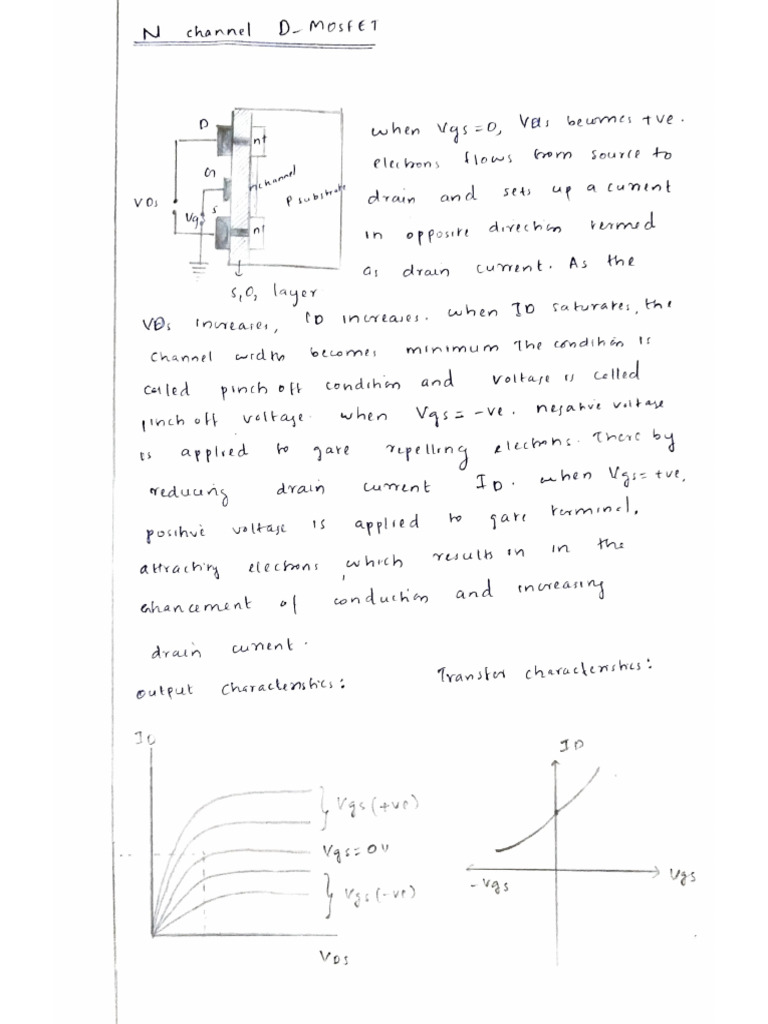 N channel D-MOSFET
D
n+
G
n channel
P substrate
VDs
Vgs
s
n+
s,O, layer
when Vgs=0, VDs becomes +ve.
electrons flows from source to
drain and sets up a current
in opposite direction termed
as drain current. As the
VDs increases, ID increases. when ID saturates, the
channel width becomes minimum The condition is
called pinch off condition and voltage is called
pinch off voltage. when Vgs = -ve. negative voltage
is applied to gate repelling electrons. There by
reducing drain current ID. when Vgs = +ve,
positive voltage is applied to gate terminal,
attracting electrons, which results in in the
ehancement of conduction and increasing
drain current.
output characteristics: Transfer characteristics:
ID
Vgs(+ve)
Vgs = 0V
Vgs(-ve)
VDS
ID
-Vgs
Vgs